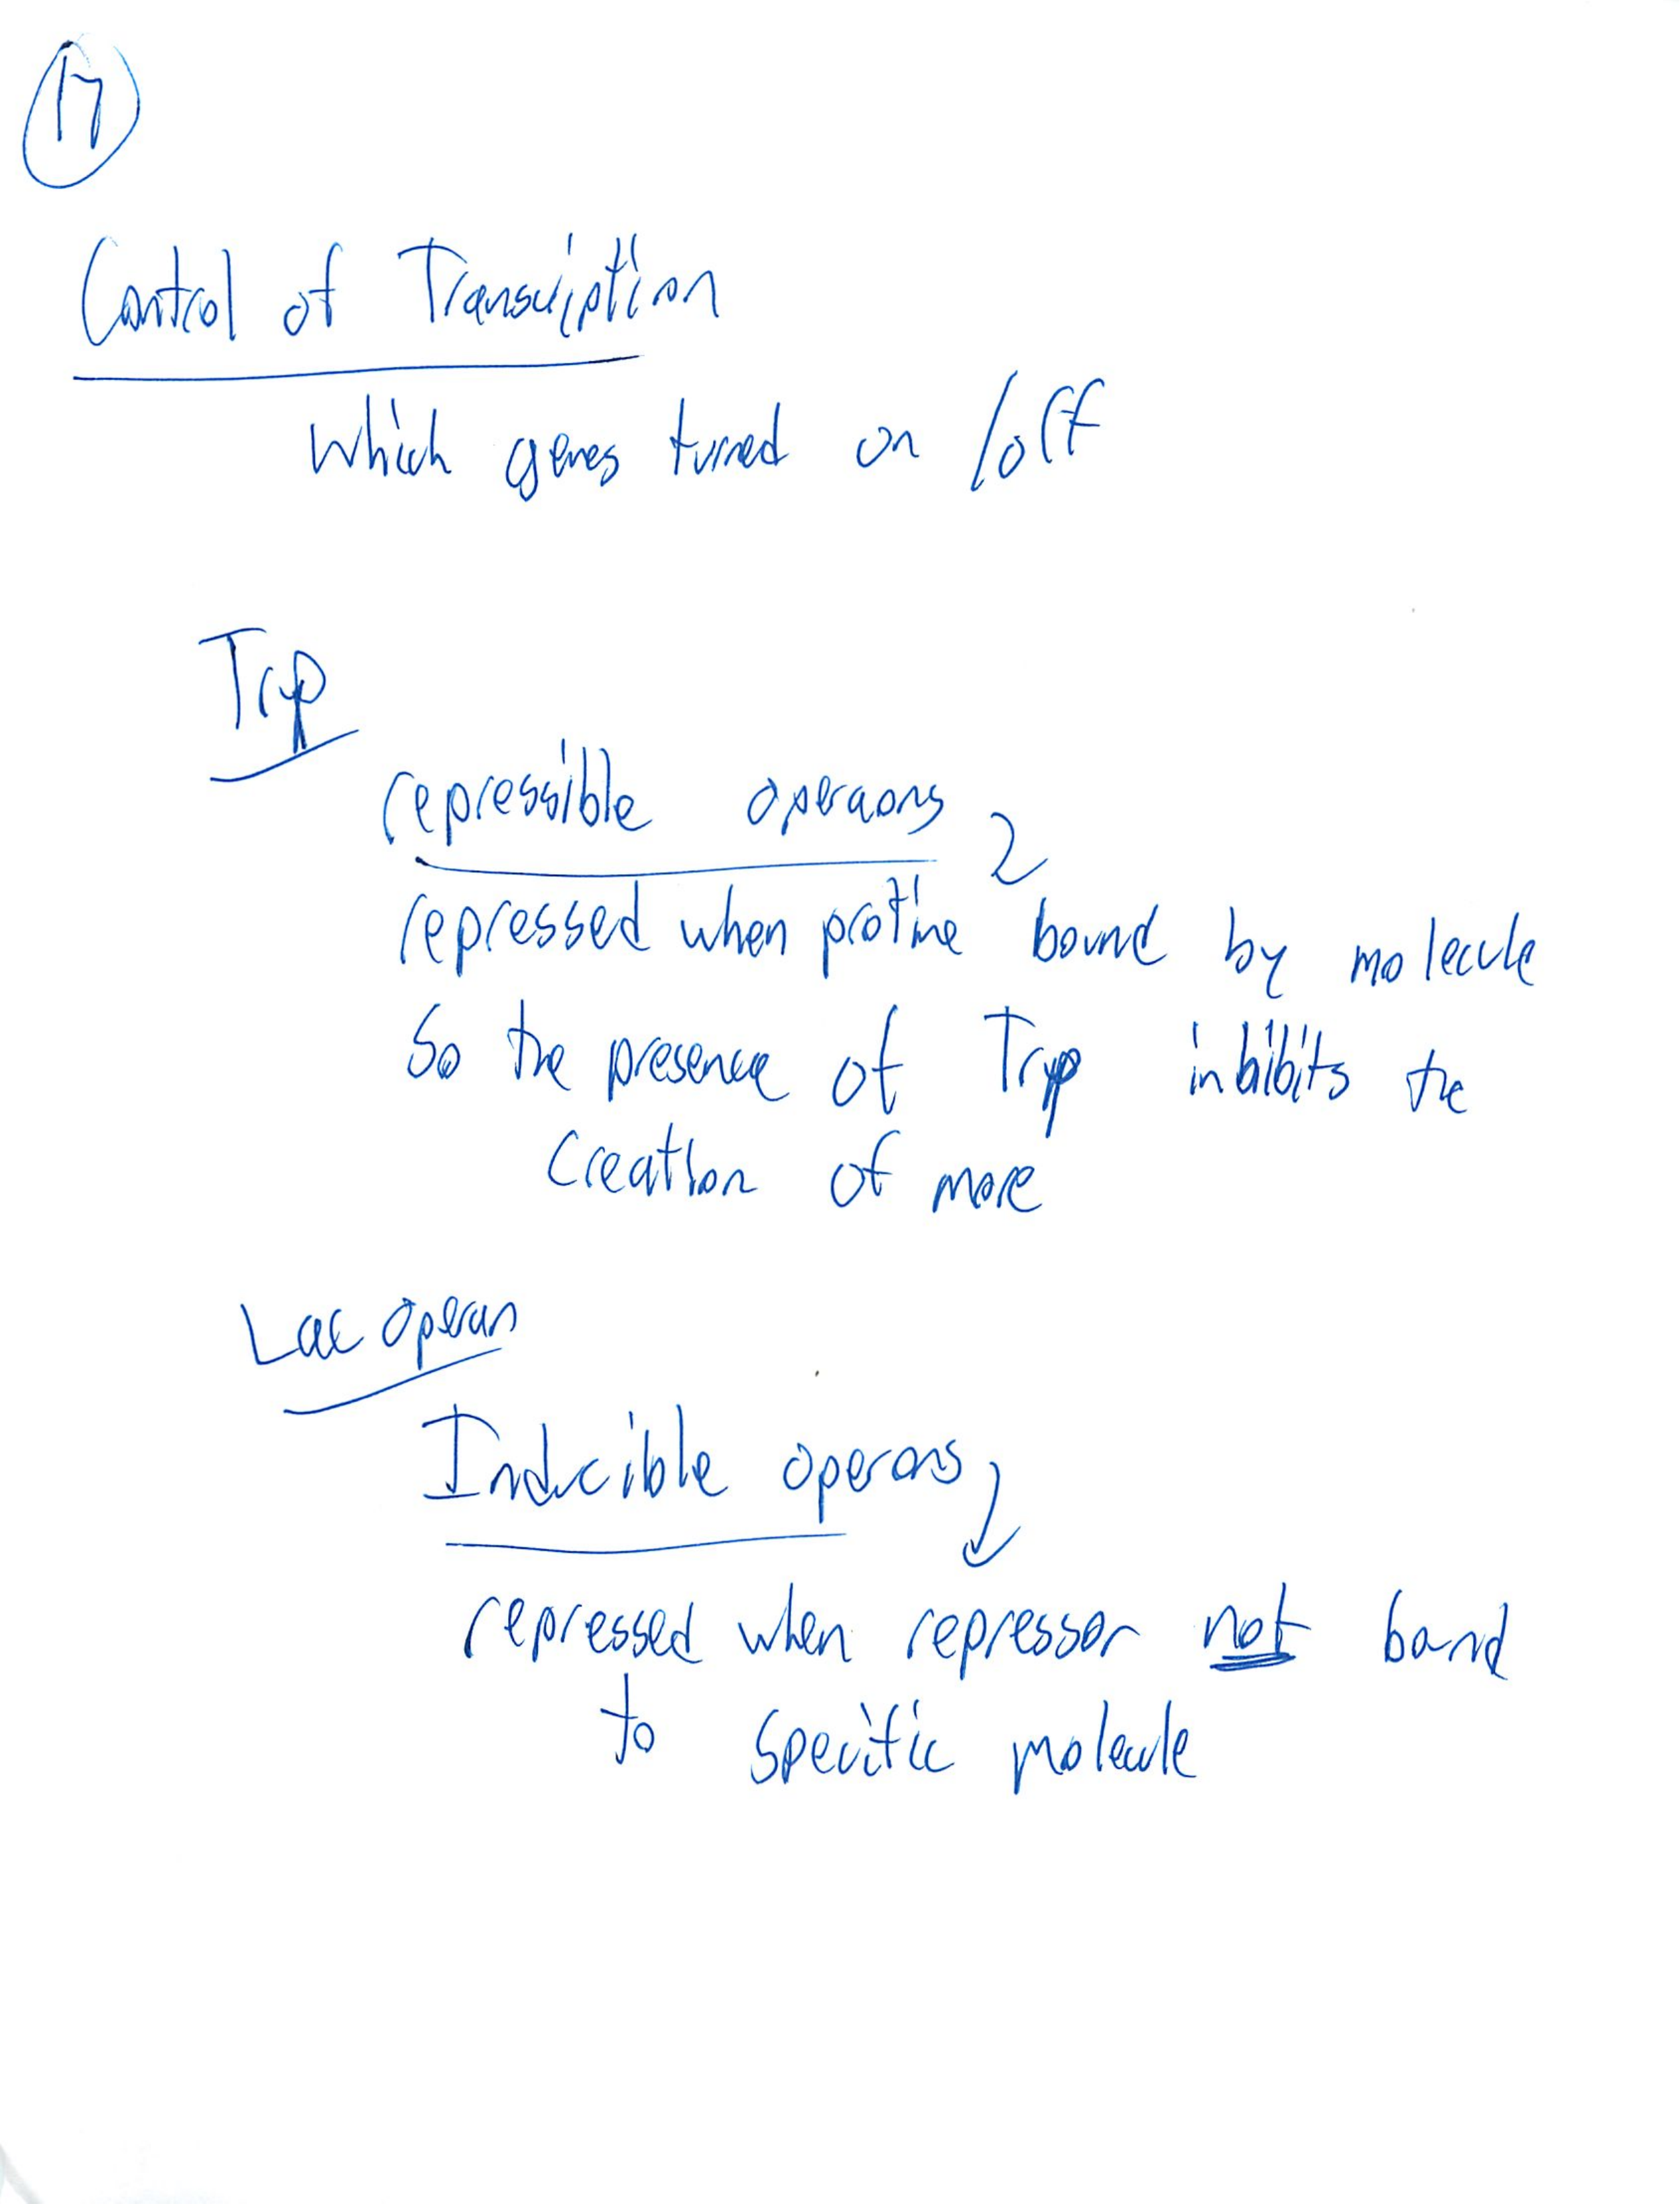 17
Control of Transcription
which genes turned on /off
Trp
repressible operaons
repressed when protine bound by molecule
So the presence of Trp inhibits the
creation of more
Lac operan
Inducible operons
repressed when repressor not bond
to specific molecule